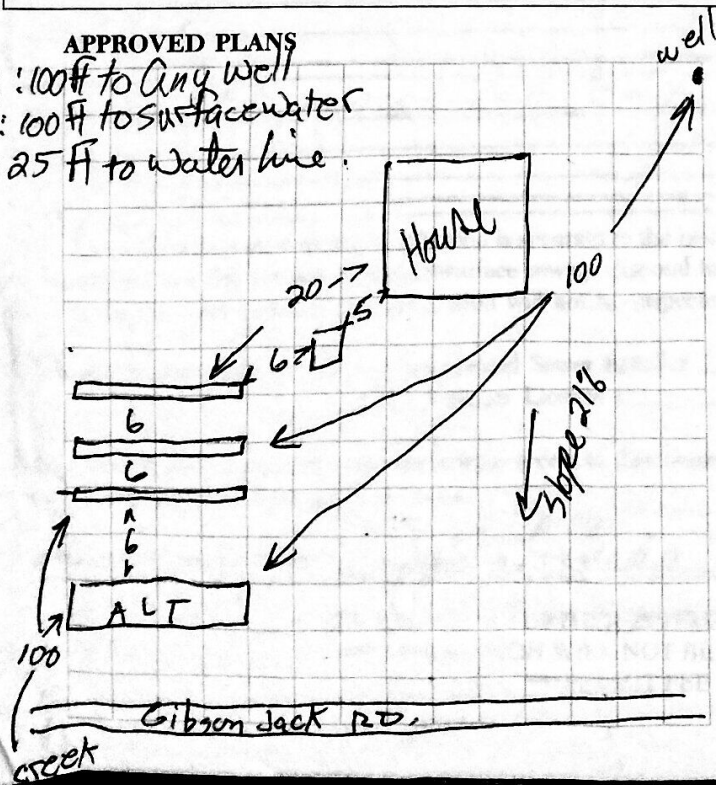 APPROVED PLANS
: 100 ft to Any Well
: 100 ft to surface water
25 ft to water line.
well
House
20
100
5
6
6
6
slope 21%
6
ALT
100
Gibson Jack RD.
creek